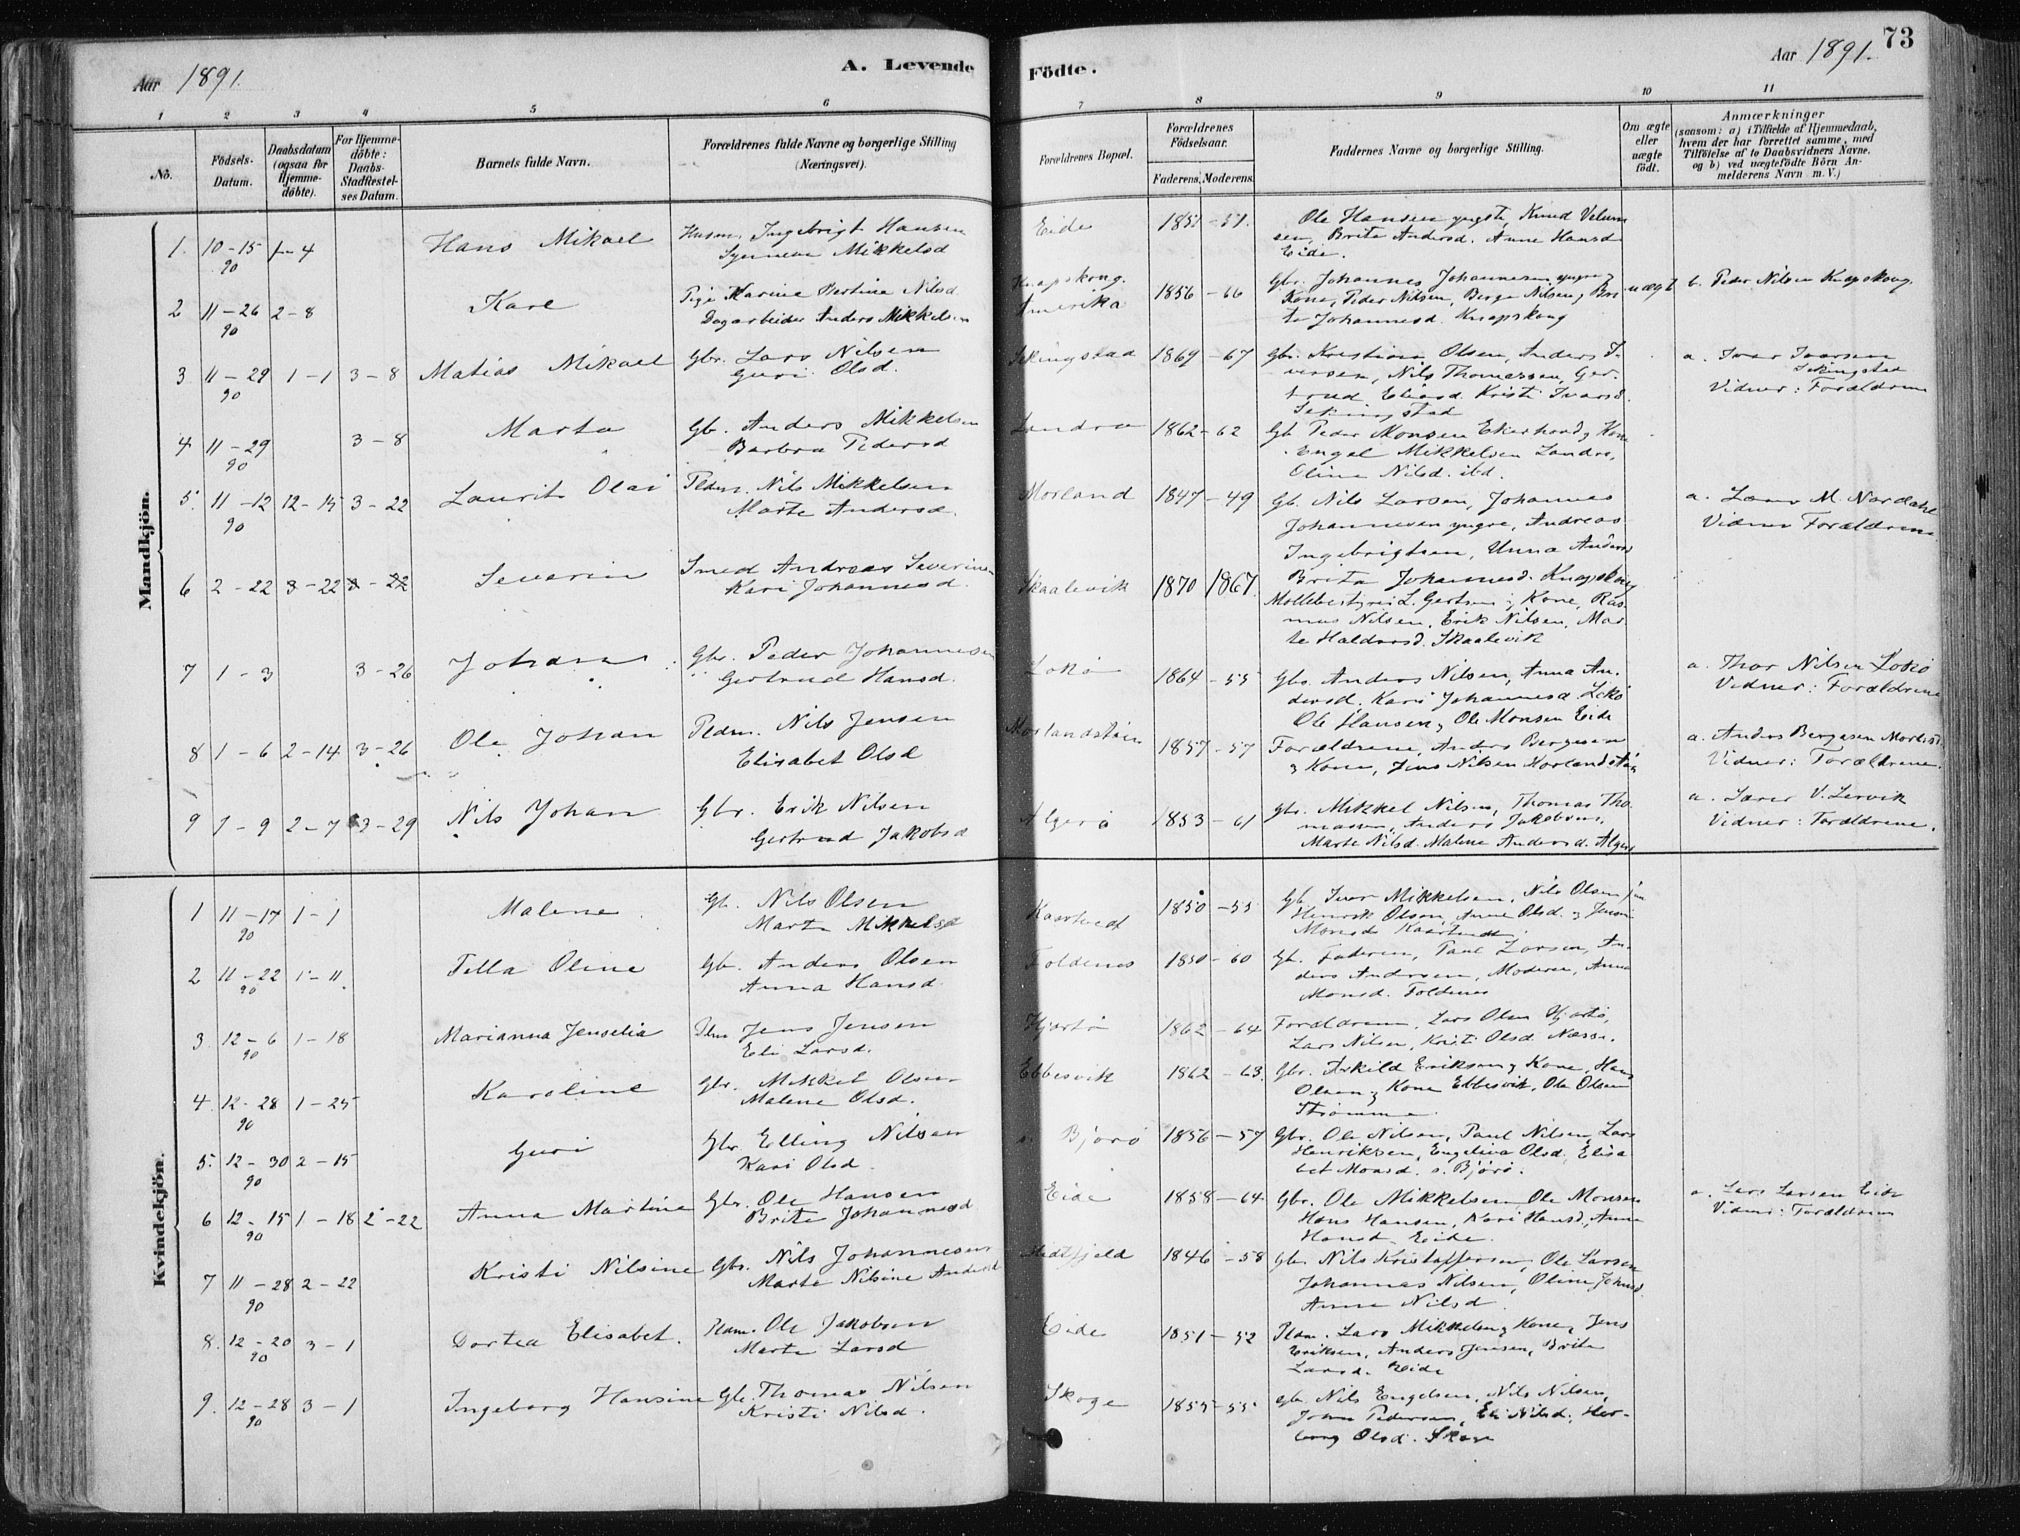 73
Aar 1891.
A. Levende
Födte.
Aar 1891.
1 2 3 4 5 6 7 8 9 10 11
No.
Födsels-
Datum.
Daabsdatum
(ogsaa for
Hjemme-
döbte).
For Hjemme-
döbte:
Daabs-
Stadfæstel-
ses Datum.
Barnets fulde Navn.
Forældrenes fulde Navne og borgerlige Stilling
(Næringsvei).
Forældrenes Bopæl.
Forældrenes
Födselsaar.
Faderens. Moderens.
Faddernes Navne og borgerlige Stilling.
Om ægte
eller
uægte
födt.
Anmærkninger
(saasom: a) i Tilfælde af Hjemmedaab,
hvem der har forrettet samme, med
Tilföielse af to Daabsvidners Navne,
og b) ved uægtefödte Börn An-
melderens Navn m. V.)
Mandkjön.
1. 10-15 90 1-4 Hans Mikael
Husm. Ingebrigt Hansen
Synneva Mikkelsd
Eide 1851-51.
Ole Hansen yngste, Knud
Brita Andersd. Anne Hansd
Eide.
2 11-26 90 2-8 Kare
Pige Karine Bertine Nilsd
Dagarbeider Anders Mikkelsen
Knapskong.
Amerika
1856-66
Gbr. Johannes Johannesen yngre og
Kone, Peder Nilsen, Berge Nilsen, Bri-
ta Johannesd. Knapskong
uægt b. Peder Nilsen Knapskong.
3 11-29 90 1-1 3-8 Matias Mikael
Gbr. Lars Nilsen
Guri Olsd.
Sekingstad 1869-67
Gbr. Kristian Olsen, Anders I-
versen, Nils Thomassen, Ger-
trud Kristi Ivarsd.
Sekingstad
a. Ivar Ivarsen
Sekingstad
Vidner: Forældrene
4 11-29 90 3-8 Marta
Gb. Anders Mikkelsen
Barbra Pedersd
Landra 1862-62
Gb Peder Monsen Ekerhovd og Kone
Engel Mikkelsen Landra,
Oline Nilsd. ibd.
5. 11-12 90 12-15 3-22 Laurits Olai
Pldm. Nils Mikkelsen
Marte Andersd.
Morland 1847-49
Gb. Nils Larsen, Johannes
Johannesen yngre, Andreas
Ingebrigtsen, Unna Andersd
Brita Johannesd. Knapskong
a. M. Nordahl
Vidner Forældrene
6 2-22 3-22 3-22 Severin
Smed Andreas Severinsen
Kari Johannesd.
Skaalevik 1870 1867.
Möllebestyrer L. Gertsen og Kone, Ras-
mus Nilsen, Erik Nilsen, Mar-
te Haldorsd. Skaalevik
7 1-3 3-26 Johan
Gbr. Peder Johannesen
Gertrud Hansd.
Lokö 1864-55
Gbr. Anders Nilsen, Anna An-
dersd. Kari Johannesd. Lokö
Ole Hansen og Ole Monsen Eide
a. Thor Nilsen Lokö
Vidner: Forældrene
8 1-6 2-14 3-26 Ole Johan
Pldm. Nils Jensen
Elisabet Olsd
Morlandstöen 1857-57
Forældrene, Anders Bergesen
og Kone, Jens Nilsen Morlandstöen
a. Anders Bergesen
Vidner: Forældrene.
9 1-9 2-7 3-29 Nils Johan
Gbr. Erik Nilsen
Gertrud Jakobsd
Algerö 1853-61
Gbr. Mikkel Nilsen, Thomas Tho-
massen, Anders Jakobsen,
Marte Nilsd. Malene Andersd. Algerö
a. Lærer V. Lervik
Vidner: Forældrene.
Kvindekjön.
1 11-17 90 1-1 Malene
Gb. Nils Olsen
Marta Mikkelsd
Kaartvedt 1850-55
Gb. Ivar Mikkelsen, Nils Olsen
Henrik Olsen, Anne Olsd. og
Monsd. Kaartvedt.
2 11-22 90 1-11. Pella Oline
Gb. Anders Olsen
Anna Hansd.
Foldenes 1850-60
Gb. Faderen, Paul Larsen, An-
ders Andersen, Moderen, Anna
Monsd. Foldenes
3. 12-6 90 1-18 Marianna Jenselia
Pldm Jens Jensen
Eli Larsd.
Hjartö 1862-64
Forældrene, Lars Olsen Hjartö,
Lars Nilsen, Kristi Olsd Næsse.
4. 12-28 90 1-25 Karoline
Gbr. Mikkel Olsen
Malene Olsd.
Ebbesvik 1862-63.
Gbr. Eriksen og Kone, Hans
Olsen og Kone Ebbesvik, Ole Olsen
Strömme.
5. 12-30 90 2-15 Guri
Gbr Elling Nilsen
Kari Olsd.
s. Björö 1856-57
Gbr. Ole Nilsen, Paul Nilsen, Lars
Henriksen, Engelina Olsd. Elisa
bet Monsd. s. Björö.
6 12-15 90 1-18 2-22 Anna Martine
Gbr. Ole Hansen
Brite Johannesd
Eide 1858-64.
Gbr. Ole Mikkelsen Ole Monsen
Hans Hansen, Kari Hansd, Anne
Hansd. Eide.
a. Lars Larsen Eide
Vidner: Forældrene
7 11-28 90 2-22 Kristi Nilsine
Gbr. Nils Johannesen
Marte Nilsine Andersd
Midtfjeld 1846-58
Gbr Nils Kristoffersen, Ole Larsen
Johannes Nilsen, Oline
Anne Nilsd.
8. 12-20 90 3-1 Dortea Elisabet.
Pldm. Ole Jakobsen
Marte Larsd
Eide 1851-52
Pldm. Lars Mikkelsen og Kone, Jens
Eriksen, Anders Jensen, Brita
Larsd. Eide
9. 12-28 90 3-1 Ingeborg Hansine
Gbr. Thomas Nilsen
Kristi Nilsd.
Skoge 1855-55
Gbr. Nils Engelsen, Nils Nilsen,
Pedersen, Eli Nilsd. Her-
borg Olsd. Skoge